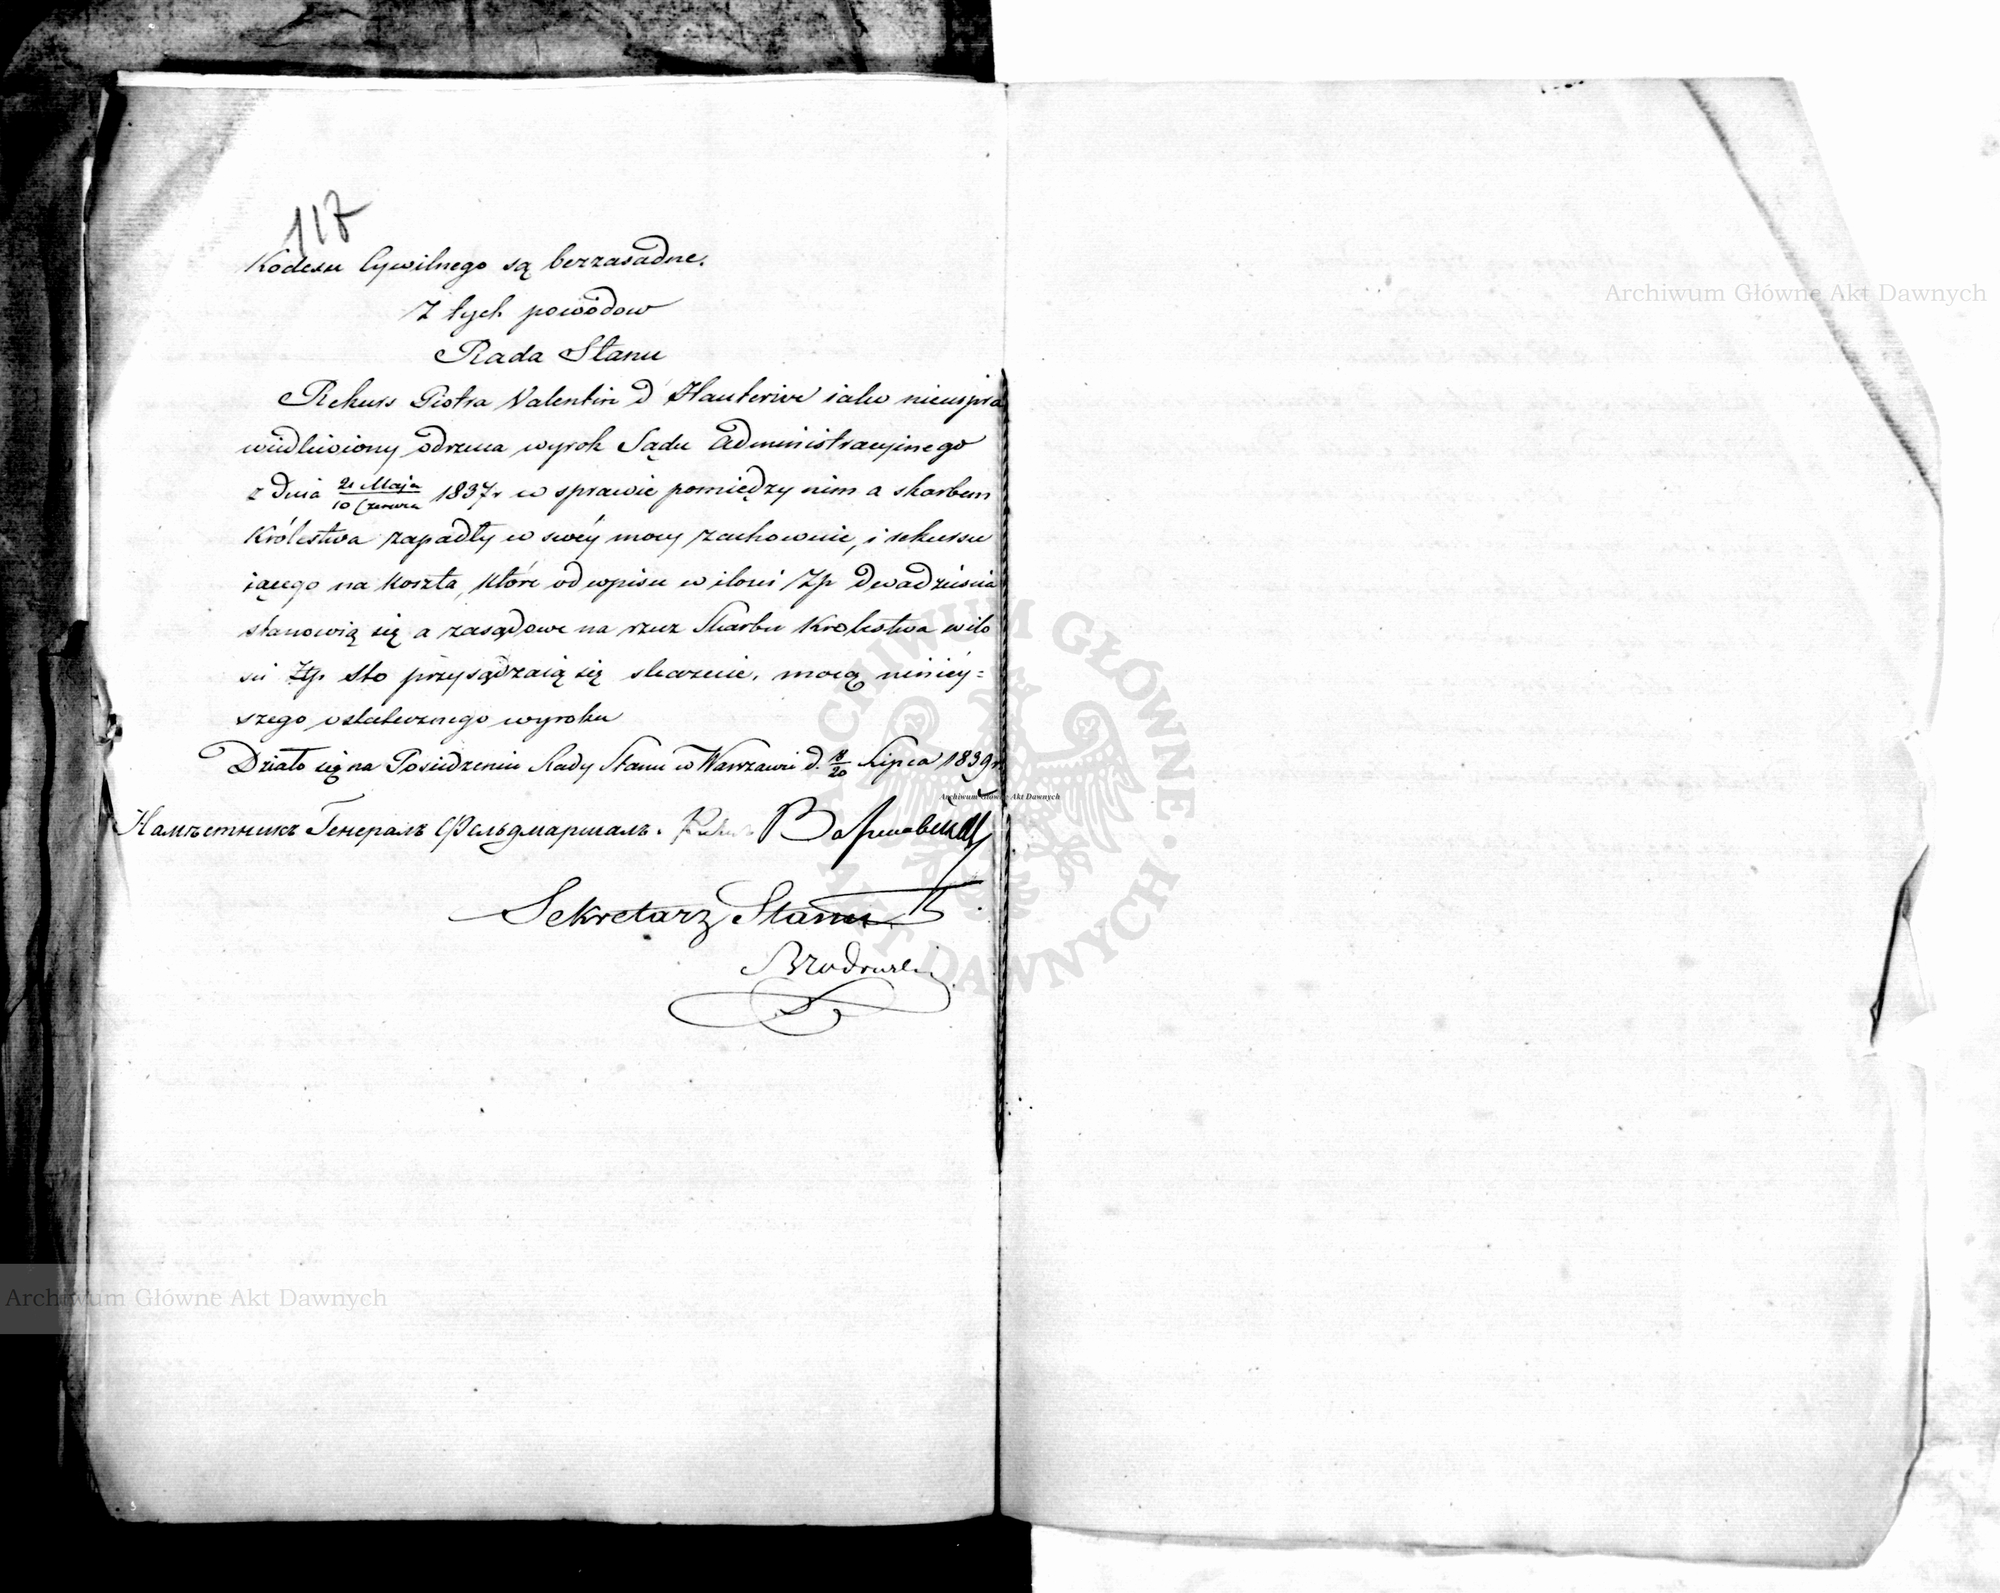 117
Kodexu Cywilnego są bezzasadne.
Z tych powodów
Rada Stanu
Rekurs Piotra Valentin d'Hauterive iako nieuspra
wiedliwiony odrzuca wyrok Sądu Administracyinego
z dnia 21 Maja / 10 Czerwca 1837 r w sprawie pomiędzy nim a skarbem
Królestwa zapadły w swéy mocy zachowuie, i rekursu
iącego na koszta, które od wpisu w ilości Zp dwadzieścia
stanowią się a zasądowe na rzecz Skarbu Królestwa w ilo
ści Złp. sto przysądzaią się skazuie, mocą ninieÿ=
szego ostatecznego wyroku
Działo się na Posiedzeniu Rady Stanu w Warszawie d. 8/20 Lipca 1839 r.
Намѣстникъ Генералъ Фельдмаршалъ. Варшавскій
Sekretarz Stanu
Brzozowski
Archiwum Główne Akt Dawnych
Archiwum Główne Akt Dawnych
Archiwum Główne Akt Dawnych
ARCHIWUM GŁÓWNE AKT DAWNYCH